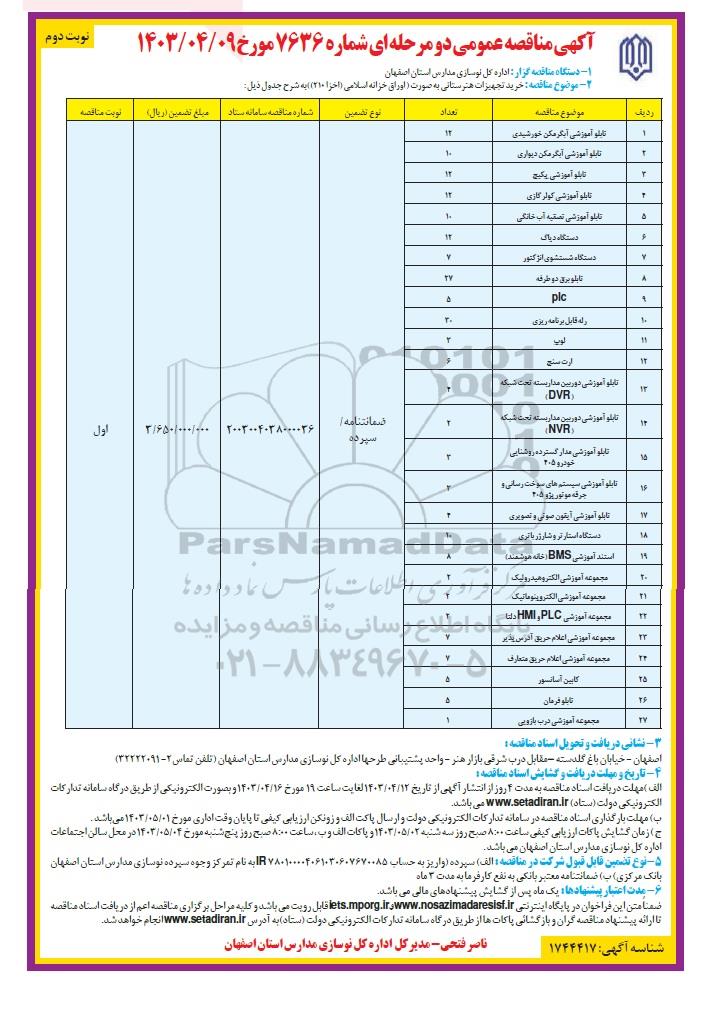 نوبت دوم
آگهی مناقصه عمومی دو مرحله ای شماره ۷۶۳۶ مورخ ۱۴۰۳/۰۴/۰۹
۱- دستگاه مناقصه گزار: اداره کل نوسازی مدارس استان اصفهان
۲- موضوع مناقصه: خرید تجهیزات هنرستانی به صورت (اوراق خزانه اسلامی (اخزا ۲۱۰)) به شرح جدول ذیل:
ردیف موضوع مناقصه تعداد نوع تضمین شماره مناقصه سامانه ستاد مبلغ تضمین (ریال) نوبت مناقصه
۱ تابلو آموزشی آبگرمکن خورشیدی ۱۲
۲ تابلو آموزشی آبگرمکن دیواری ۱۰
۳ تابلو آموزشی پکیج ۱۲
۴ تابلو آموزشی کولر گازی ۱۲
۵ تابلو آموزشی تصفیه آب خانگی ۱۰
۶ دستگاه دیاگ ۱۲
۷ دستگاه شستشوی انژکتور ۷
۸ تابلو برق دو طرفه ۲۷
۹ plc ۵
۱۰ رله قابل برنامه ریزی ۳۰
۱۱ لوپ ۳
۱۲ ارت سنج ۶
۱۳ تابلو آموزشی دوربین مداربسته تحت شبکه (DVR) ۴
۱۴ تابلو آموزشی دوربین مداربسته تحت شبکه (NVR) ۲
ضمانتنامه/ سپرده ۲۰۰۳۰۰۴۰۳۸۰۰۰۰۳۶ ۳/۶۵۰/۰۰۰/۰۰۰ اول
۱۵ تابلو آموزشی مدار گسترده روشنایی خودرو ۴۰۵ ۳
۱۶ تابلو آموزشی سیستم های سوخت رسانی و جرقه موتور پژو ۴۰۵ ۳
۱۷ تابلو آموزشی آیفون صوتی و تصویری ۴
۱۸ دستگاه استارتر و شارژر باتری ۱۰
۱۹ استند آموزشی BMS (خانه هوشمند) ۸
۲۰ مجموعه آموزشی الکتروهیدرولیک ۲
۲۱ مجموعه آموزشی الکتروپنوماتیک ۴
۲۲ مجموعه آموزشی PLC و HMI دلتا ۲
۲۳ مجموعه آموزشی اعلام حریق آدرس پذیر ۷
۲۴ مجموعه آموزشی اعلام حریق متعارف ۷
۲۵ کابین آسانسور ۵
۲۶ تابلو فرمان ۵
۲۷ مجموعه آموزشی درب بازویی ۱
ParsNamadData
مرکز فرآوری اطلاعات پارس نماد داده ها
پایگاه اطلاع رسانی مناقصه و مزایده
۰۲۱-۸۸۳۴۹۶۷۰-۵
۳- نشانی دریافت و تحویل اسناد مناقصه:
اصفهان - خیابان باغ گلدسته - مقابل درب شرقی بازار هنر - واحد پشتیبانی طرحها اداره کل نوسازی مدارس استان اصفهان (تلفن تماس ۲-۳۲۲۲۲۰۹۱)
۴- تاریخ و مهلت دریافت و گشایش اسناد مناقصه:
الف) مهلت دریافت اسناد مناقصه به مدت ۴ روز از انتشار آگهی از تاریخ ۱۴۰۳/۰۴/۱۲ لغایت ساعت ۱۹ مورخ ۱۴۰۳/۰۴/۱۶ و بصورت الکترونیکی از طریق درگاه سامانه تدارکات
الکترونیکی دولت (ستاد) www.setadiran.ir می باشد.
ب) مهلت بارگذاری اسناد مناقصه در سامانه تدارکات الکترونیکی دولت و ارسال پاکت الف و زونکن ارزیابی کیفی تا پایان وقت اداری مورخ ۱۴۰۳/۰۵/۰۱ می باشد.
ج) زمان گشایش پاکات ارزیابی کیفی ساعت ۸:۰۰ صبح روز سه شنبه ۱۴۰۳/۰۵/۰۲ و پاکات الف و ب، ساعت ۸:۰۰ صبح روز پنج شنبه مورخ ۱۴۰۳/۰۵/۰۴ در محل سالن اجتماعات
اداره کل نوسازی مدارس استان اصفهان می باشد.
۵- نوع تضمین قابل قبول شرکت در مناقصه: الف) سپرده (واریز به حساب IR ۷۸۰۱۰۰۰۰۴۰۶۱۰۳۰۶۰۷۶۷۰۰۸۵ به نام تمرکز وجوه سپرده نوسازی مدارس استان اصفهان
بانک مرکزی) ب) ضمانتنامه معتبر بانکی به نفع کارفرما به مدت ۳ ماه
۶- مدت اعتبار پیشنهادها: یک ماه پس از گشایش پیشنهادهای مالی می باشد.
ضمنا متن این فراخوان در پایگاه اینترنتی www.nosazimadaresisf.ir و iets.mporg.ir قابل رویت می باشد و کلیه مراحل برگزاری مناقصه اعم از دریافت اسناد مناقصه
تا ارائه پیشنهاد مناقصه گران و بازگشائی پاکات ها از طریق درگاه سامانه تدارکات الکترونیکی دولت (ستاد) به آدرس www.setadiran.ir انجام خواهد شد.
ناصر فتحی - مدیر کل اداره کل نوسازی مدارس استان اصفهان
شناسه آگهی: ۱۷۴۴۴۱۷